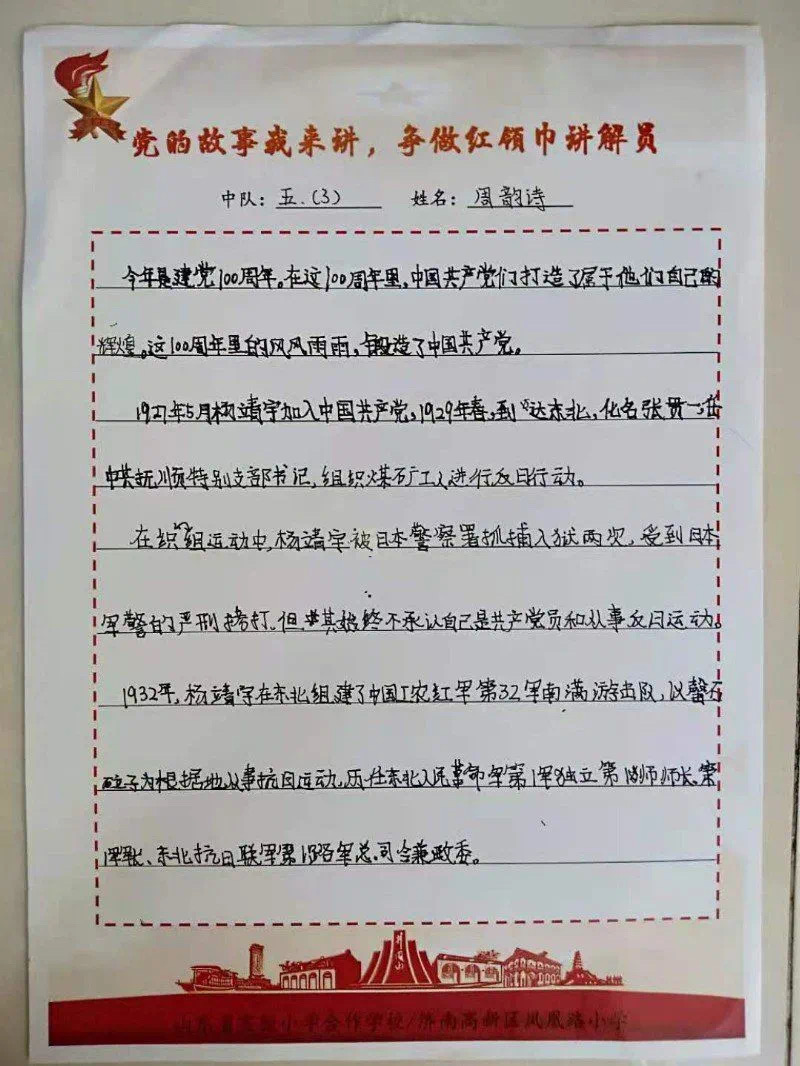 党的故事我来讲，争做红领巾讲解员
中队：五.（3） 姓名：周韵诗
今年是建党100周年。在这100周年里，中国共产党们打造了属于他们自己的
辉煌。这100周年里的风风雨雨，锻造了中国共产党。
1927年5月杨靖宇加入中国共产党，1929年春，到达东北，化名张贯一，任
中共抚顺特别支部书记，组织煤矿工人进行反日行动。
在织组运动中，杨靖宇被日本警察署抓捕入狱两次，受到日本
军警的严刑拷打，但其始终不承认自己是共产党员和从事反日运动。
1932年，杨靖宇在东北组建了中国工农红军第32军南满游击队，以磐石
玻子为根据地从事抗日运动，历任东北人民革命军第1军独立第1师师长、第
1军军长、东北抗日联军第1路军总司令兼政委。
山东省实验小学合作学校/济南高新区凤凰路小学